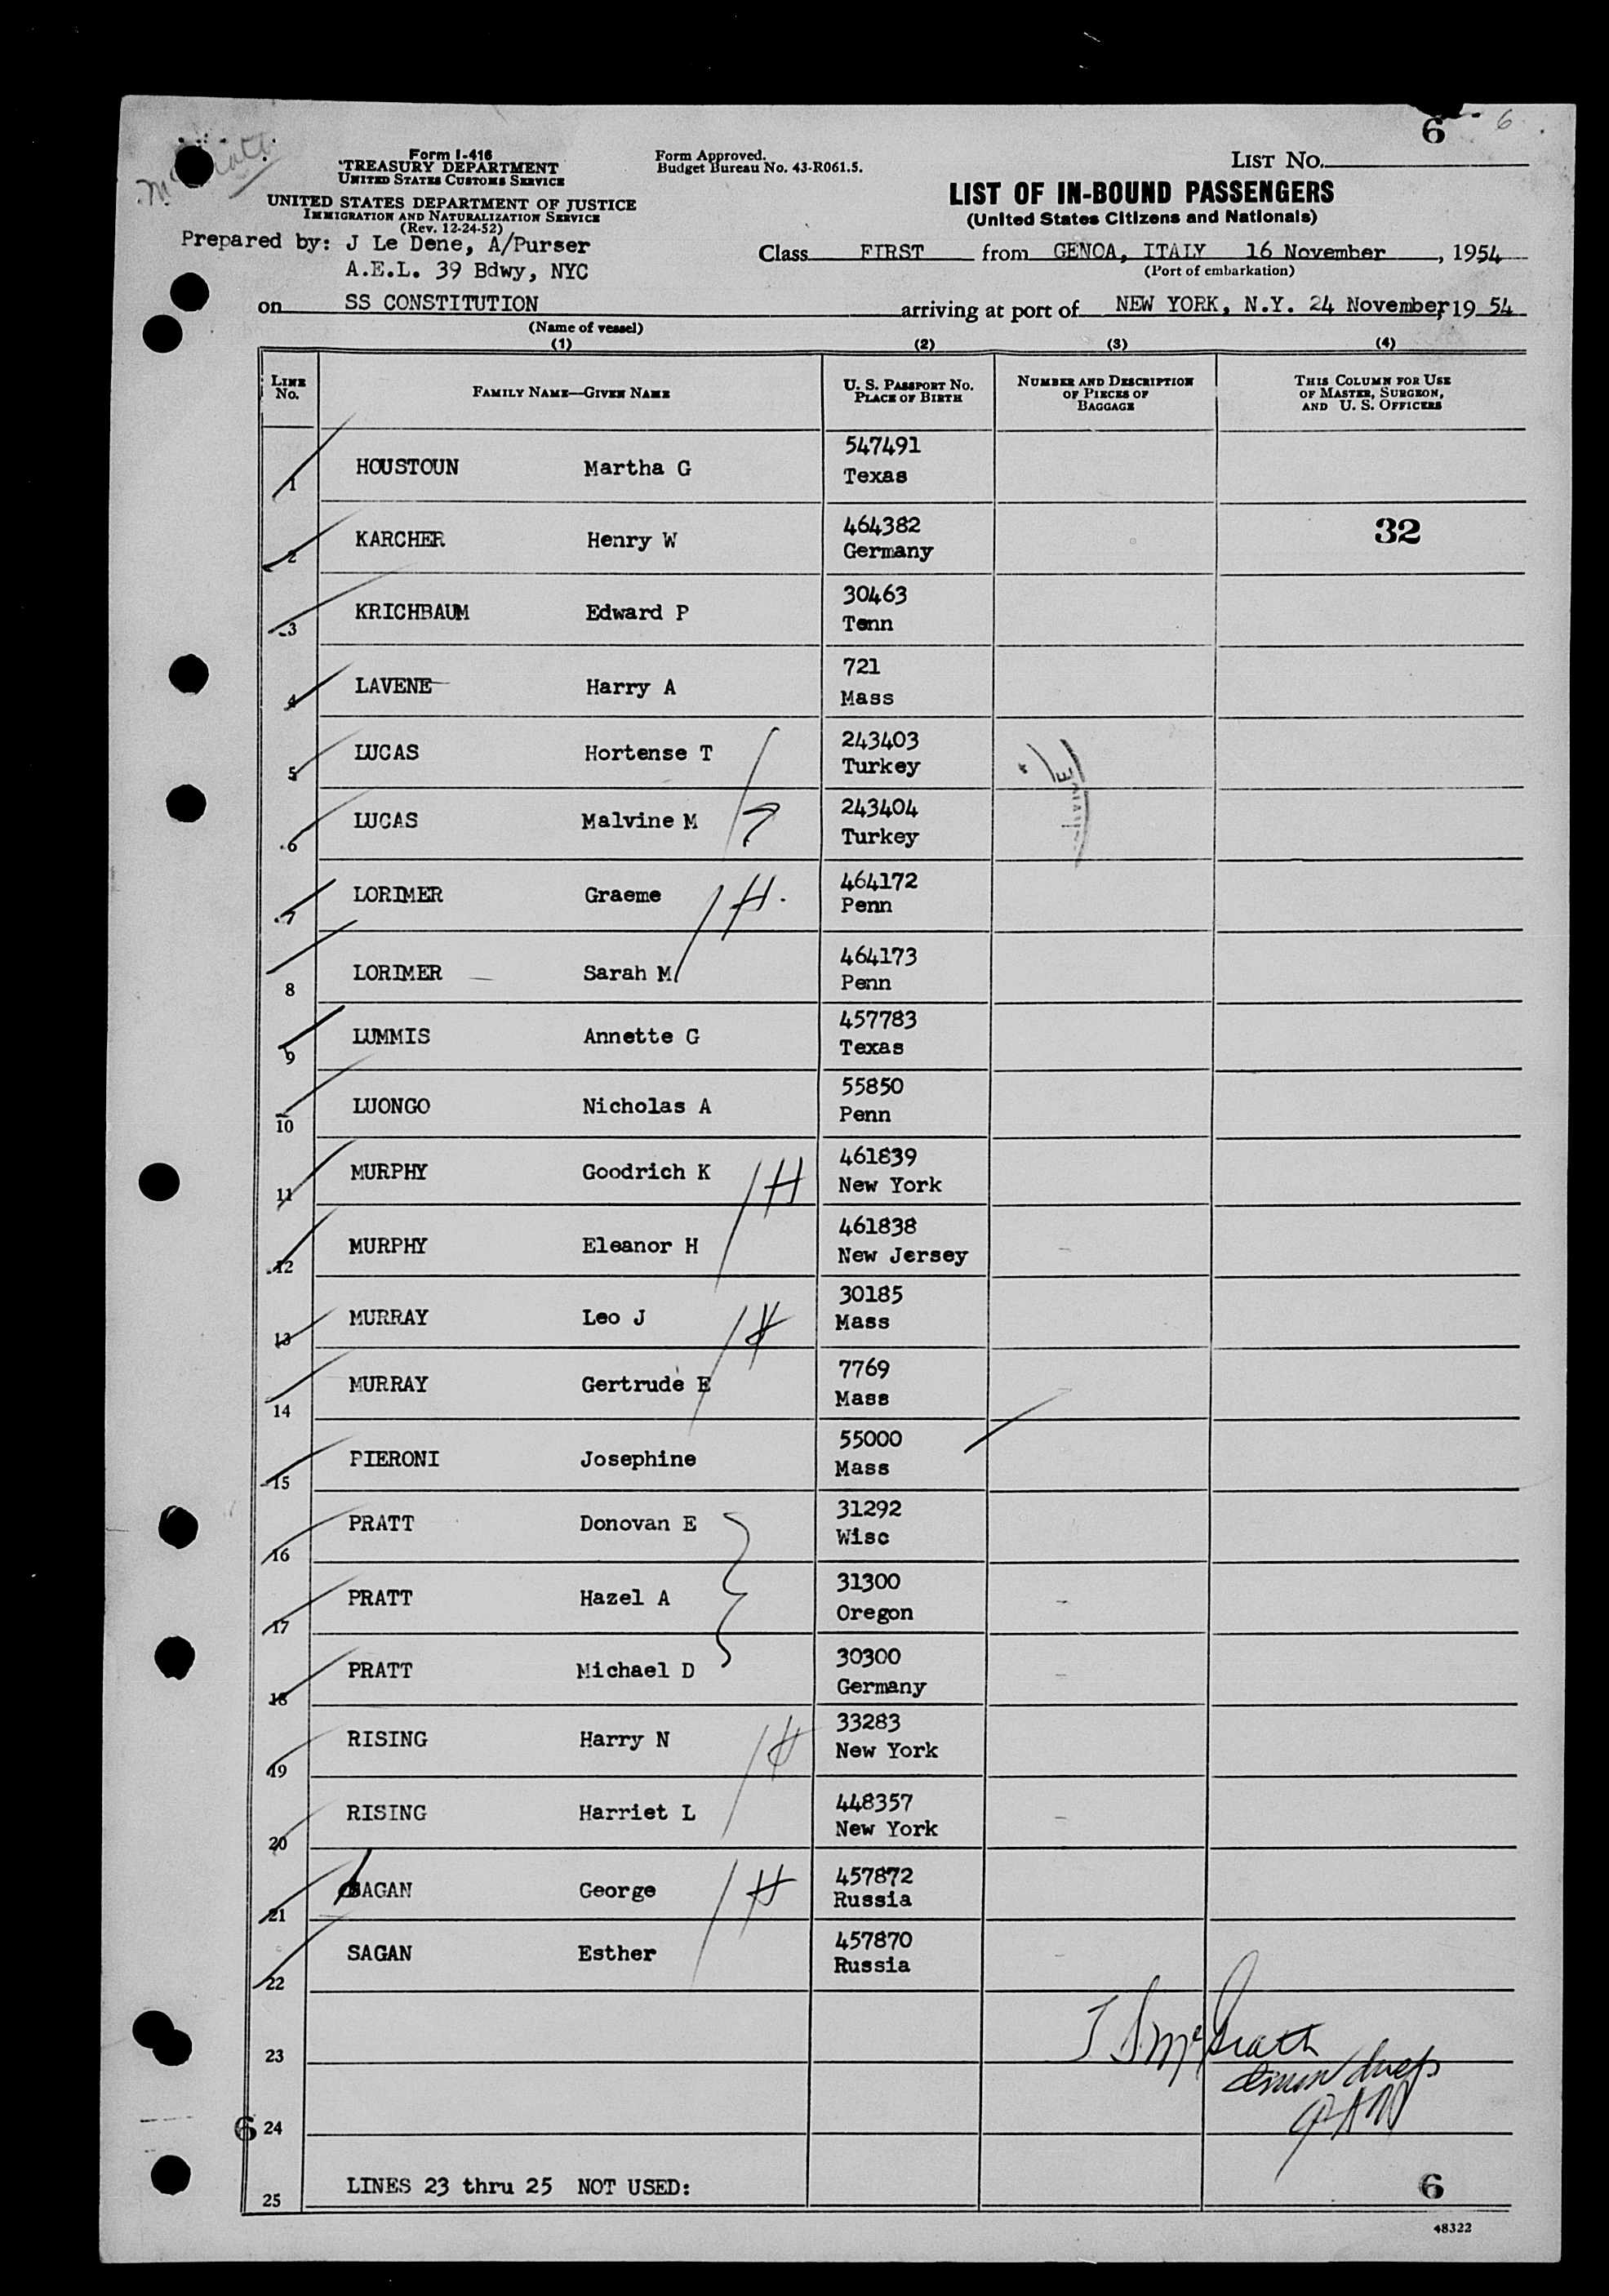 6 6
Form I-416
TREASURY DEPARTMENT
UNITED STATES CUSTOMS SERVICE
UNITED STATES DEPARTMENT OF JUSTICE
IMMIGRATION AND NATURALIZATION SERVICE
(Rev. 12-24-52)
Form Approved.
Budget Bureau No. 43-R061.5.
LIST NO.
LIST OF IN-BOUND PASSENGERS
(United States Citizens and Nationals)
Prepared by: J Le Dene, A/Purser
A.E.L. 39 Bdwy, NYC
Class FIRST from GENOA, ITALY 16 November, 1954
(Port of embarkation)
on SS CONSTITUTION arriving at port of NEW YORK, N.Y. 24 November, 1954
(Name of vessel)
(1) (2) (3) (4)
LINE No. FAMILY NAME—GIVEN NAME U. S. PASSPORT NO. PLACE OF BIRTH NUMBER AND DESCRIPTION OF PIECES OF BAGGAGE THIS COLUMN FOR USE OF MASTER, SURGEON, AND U. S. OFFICERS
1 HOUSTOUN Martha G 547491 Texas
2 KARCHER Henry W 464382 Germany 32
3 KRICHBAUM Edward P 30463 Tenn
4 LAVENE Harry A 721 Mass
5 LUCAS Hortense T 243403 Turkey
6 LUCAS Malvine M 243404 Turkey
7 LORIMER Graeme H. 464172 Penn
8 LORIMER Sarah M 464173 Penn
9 LUMMIS Annette G 457783 Texas
10 LUONGO Nicholas A 55850 Penn
11 MURPHY Goodrich K H 461839 New York
12 MURPHY Eleanor H 461838 New Jersey
13 MURRAY Leo J H 30185 Mass
14 MURRAY Gertrude E 7769 Mass
15 PIERONI Josephine 55000 Mass
16 PRATT Donovan E 31292 Wisc
17 PRATT Hazel A 31300 Oregon
18 PRATT Michael D 30300 Germany
19 RISING Harry N H 33283 New York
20 RISING Harriet L 448357 New York
21 SAGAN George H 457872 Russia
22 SAGAN Esther 457870 Russia
23
T S McGrath
6 24
25 LINES 23 thru 25 NOT USED: 6
48322